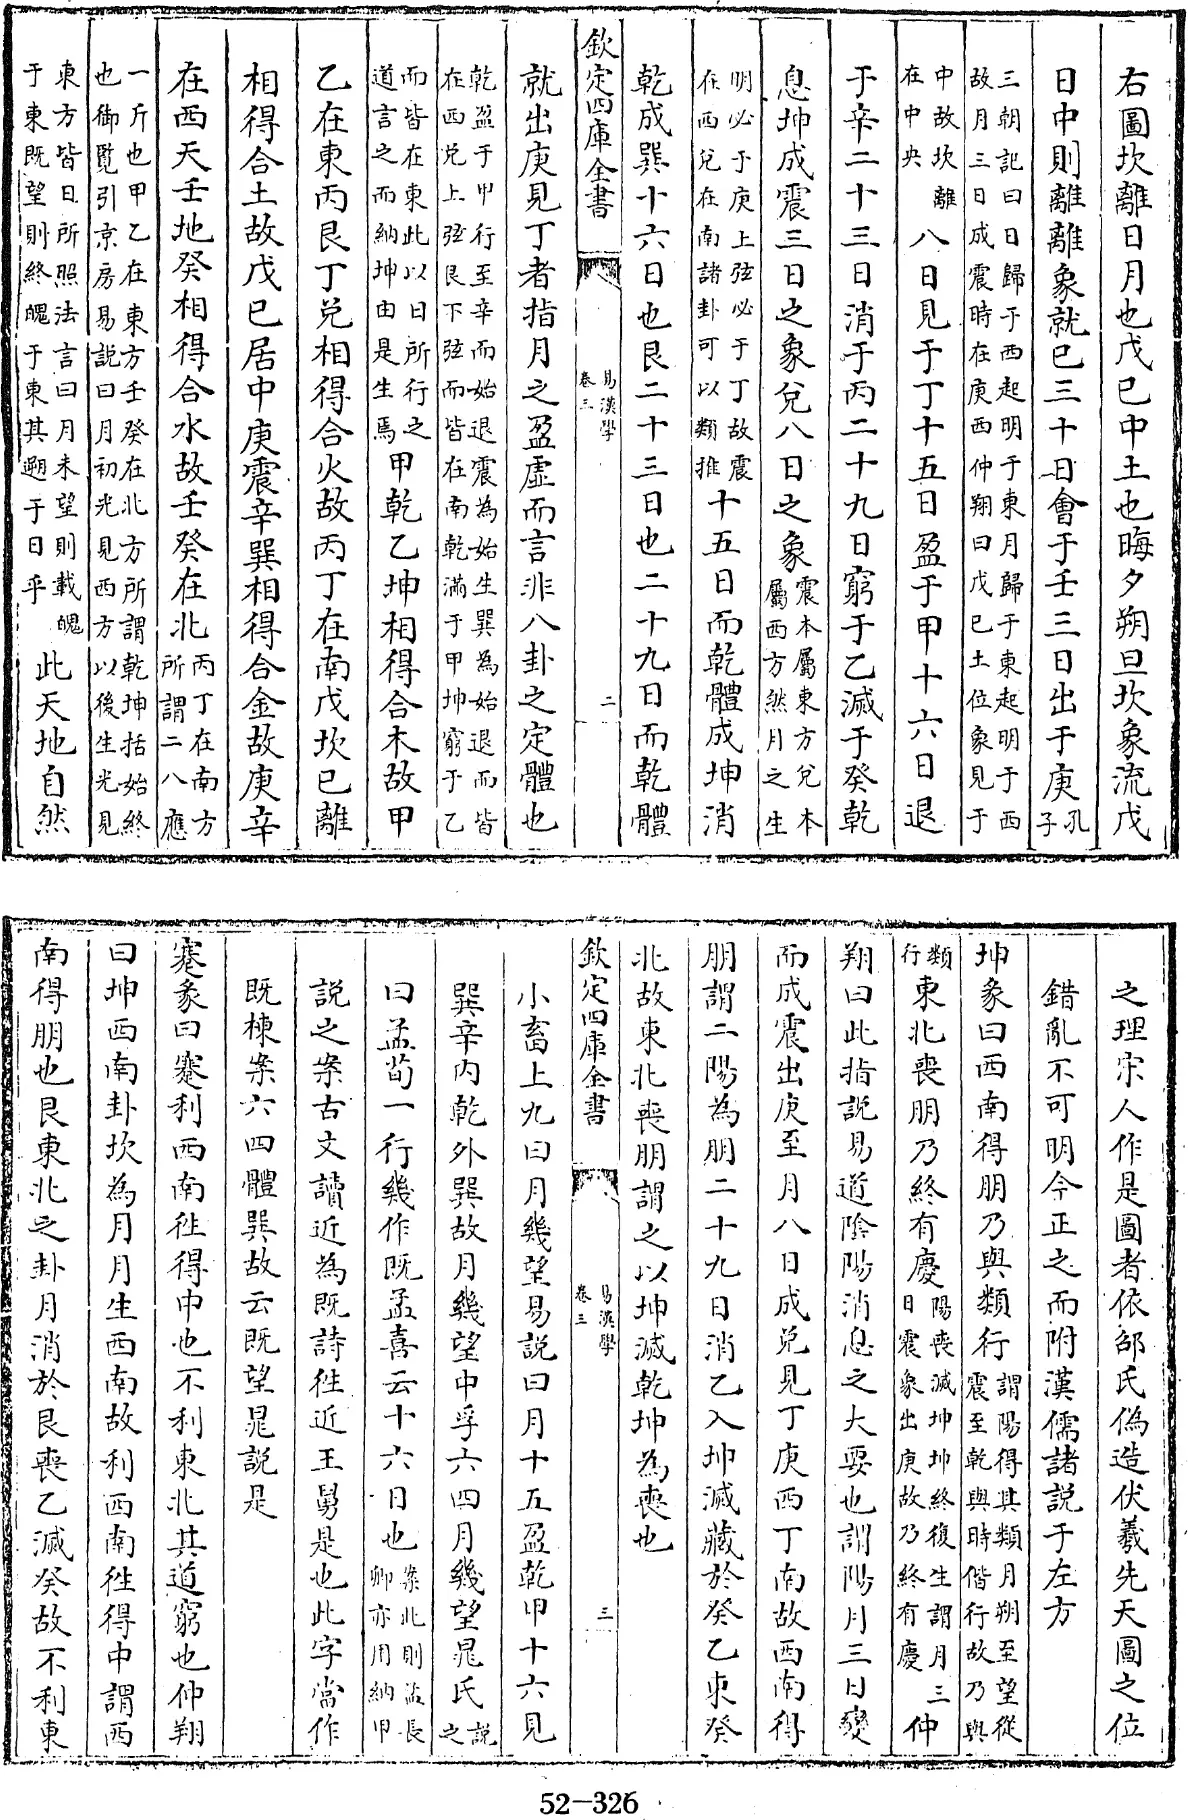 右圖坎離日月也戊巳中土也晦夕朔旦坎象流戊
日中則離離象就巳三十日會于壬三日出于庚孔子
三朝記曰日歸于西起明于東月歸于東起明于西
故月三日成震時在庚西仲翔曰戊巳土位象見于
中故坎離
在中央
八日見于丁十五日盈于甲十六日退
于辛二十三日消于丙二十九日窮于乙滅于癸乾
息坤成震三日之象兌八日之象震本屬東方兌本
屬西方然月之生
明必于庚上弦必于丁故震
在西兌在南諸卦可以類推
十五日而乾體成坤消
乾成巽十六日也艮二十三日也二十九日而乾體
欽定四庫全書
易漢學
卷三
二
就出庚見丁者指月之盈虛而言非八卦之定體也
乾盈于甲行至辛而始退震為始生巽為始退而皆
在西兌上弦艮下弦而皆在南乾滿于甲坤窮于乙
而皆在東此以日所行之
道言之而納坤由是生焉
甲乾乙坤相得合木故甲
乙在東丙艮丁兌相得合火故丙丁在南戊坎巳離
相得合土故戊巳居中庚震辛巽相得合金故庚辛
在西天壬地癸相得合水故壬癸在北丙丁在南方
所謂二八應
一斤也甲乙在東方壬癸在北方所謂乾坤括始終
也御覽引京房易說曰月初光見西方以後生光見
東方皆日所照法言曰月未望則載魄
于東既望則終魄于東其遡于日乎
此天地自然
之理宋人作是圖者依邵氏偽造伏羲先天圖之位
錯亂不可明今正之而附漢儒諸說于左方
坤彖曰西南得朋乃與類行謂陽得其類月朔至望從
震至乾與時偕行故乃與
類
行
東北喪朋乃終有慶陽喪滅坤坤終復生謂月三
日震象出庚故乃終有慶
仲
翔曰此指說易道陰陽消息之大要也謂陽月三日變
而成震出庚至月八日成兌見丁庚西丁南故西南得
朋謂二陽為朋二十九日消乙入坤滅藏於癸乙東癸
北故東北喪朋謂之以坤滅乾坤為喪也
欽定四庫全書
易漢學
卷三
三
小畜上九曰月幾望易說曰月十五盈乾甲十六見
巽辛內乾外巽故月幾望中孚六四月幾望晁氏說之
曰孟荀一行幾作既孟喜云十六日也案此則孟長
卿亦用納甲
說之案古文讀近為既詩徃近王舅是也此字當作
既棟案六四體巽故云既望晁說是
蹇彖曰蹇利西南徃得中也不利東北其道窮也仲翔
曰坤西南卦坎為月月生西南故利西南徃得中謂西
南得朋也艮東北之卦月消於艮喪乙滅癸故不利東
52-326